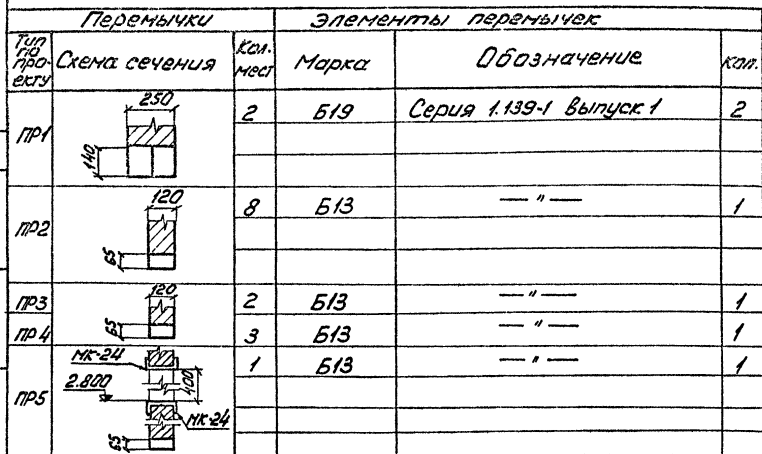 Перемычки Элементы перемычек
Тип по проекту Схема сечения Кол. мест Марка Обозначение кол.
ПР1 250 140 2 Б19 Серия 1.139-1 выпуск 1 2
ПР2 120 65 8 Б13 — " — 1
ПР3 120 2 Б13 — " — 1
ПР4 65 3 Б13 — " — 1
ПР5 МК-24 1 Б13 — " — 1
2.800 400
МК-24
65